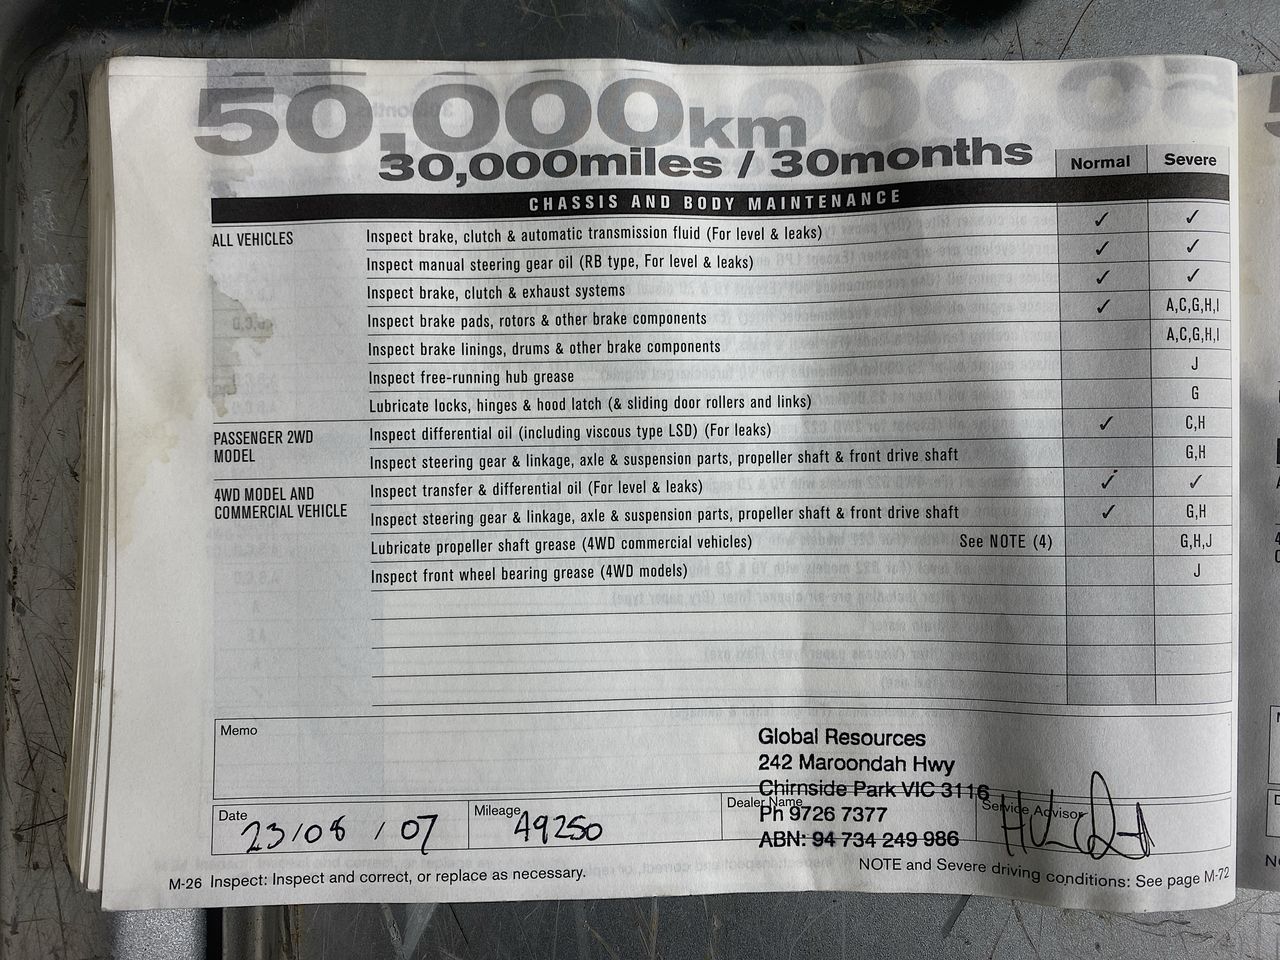 50,000km
30,000miles / 30months
Normal Severe
CHASSIS AND BODY MAINTENANCE
ALL VEHICLES Inspect brake, clutch & automatic transmission fluid (For level & leaks) ✓ ✓
Inspect manual steering gear oil (RB type, For level & leaks) ✓ ✓
Inspect brake, clutch & exhaust systems ✓ ✓
Inspect brake pads, rotors & other brake components ✓ A,C,G,H,I
Inspect brake linings, drums & other brake components A,C,G,H,I
Inspect free-running hub grease J
Lubricate locks, hinges & hood latch (& sliding door rollers and links) G
PASSENGER 2WD MODEL Inspect differential oil (including viscous type LSD) (For leaks) ✓ C,H
Inspect steering gear & linkage, axle & suspension parts, propeller shaft & front drive shaft G,H
4WD MODEL AND COMMERCIAL VEHICLE Inspect transfer & differential oil (For level & leaks) ✓ ✓
Inspect steering gear & linkage, axle & suspension parts, propeller shaft & front drive shaft ✓ G,H
Lubricate propeller shaft grease (4WD commercial vehicles) See NOTE (4) G,H,J
Inspect front wheel bearing grease (4WD models) J
Memo
Global Resources
242 Maroondah Hwy
Chirnside Park VIC 3116
Ph 9726 7377
ABN: 94 734 249 986
Date 23/08/07
Mileage 49250
Dealer Name
Service Advisor
M-26 Inspect: Inspect and correct, or replace as necessary.
NOTE and Severe driving conditions: See page M-72